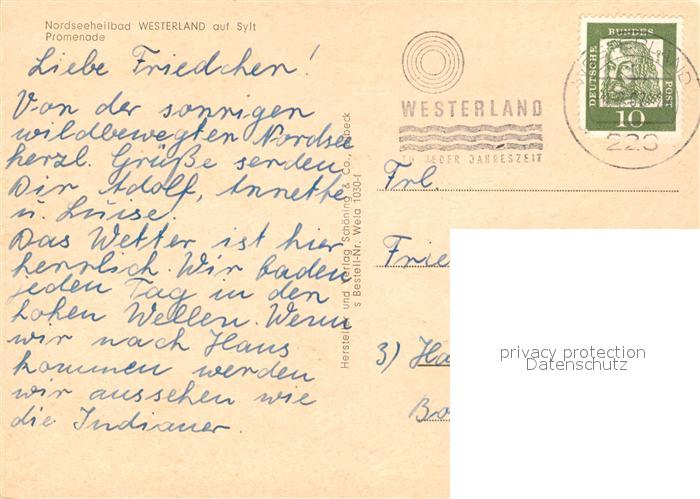 Nordseeheilbad WESTERLAND auf Sylt
Promenade
Liebe Friedchen!
Von der sonnigen
wildbewegten Nordsee
herzl. Grüße senden
Dir Adolf, Annette
u. Luise.
Das Wetter ist hier
herrlich. Wir baden
jeden Tag in den
hohen Wellen. Wenn
wir nach Haus
kommen werden
wir aussehen wie
die Indianer.
Herstellung und Verlag Schöning & Co., Lübeck
s Bestell-Nr. Wela 1030-f
WESTERLAND
ZU JEDER JAHRESZEIT
DEUTSCHE BUNDES POST
10
Frl.
Frie
3) Ha
privacy protection
Datenschutz